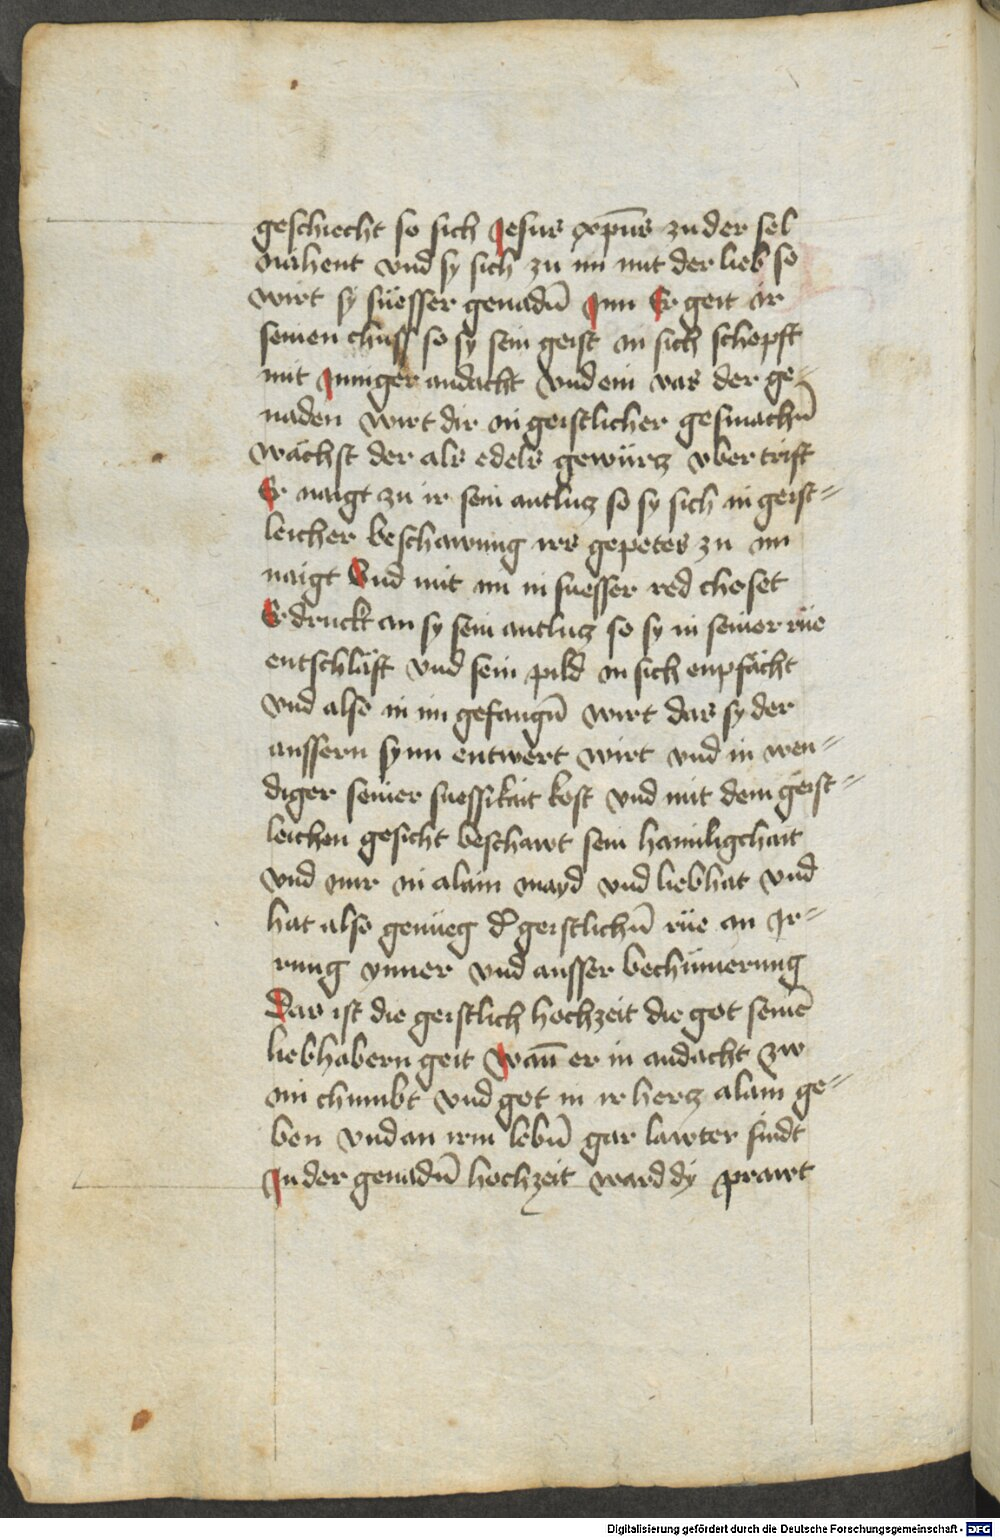 geschiecht so sich Jesus xpūs zu der sel
nahent vnd sy sich zu im mit der lieb so
wirt sy süesser genadn̄ Inn Er geit ir
seinen chuss so sy sein geist in sich schepft
mit Inniger andacht vnd ein vas der ge-
naden wirt dir in geistlicher gesmachn̄
wächst der als edels gewürz vbertrift
Er naigt zu ir sein antlutz so sy sich in geist-
leicher beschawung irs gepetes zu im
naigt Vnd mit im in suesser red choset
Er druckt an sy sein antlutz so sy in seiner rüe
entschläft vnd sein pild in sich enpfächt
vnd also in im gefangn̄ wirt das sy der
aussern synn entwert wirt vnd in wen-
diger seiner suessikait kost vnd mit dem geist-
leichen gesicht beschawt sein haimligchait
vnd nur in alain mayd vnd liebhat vnd
hat also genueg d' geistlichn̄ rüe an Ir-
rung ynner vnd ausser bechümerung
Das ist die geistlich hochzeit die got seinē
liebhabern geit Wan̄ er in andacht zw
im chumbt vnd got in ir hertz alain ge-
ben vnd an irm lebn̄ gar lawter sindt
In der genadn̄ hochzeit ward dy prawt
Digitalisierung gefördert durch die Deutsche Forschungsgemeinschaft - DFG